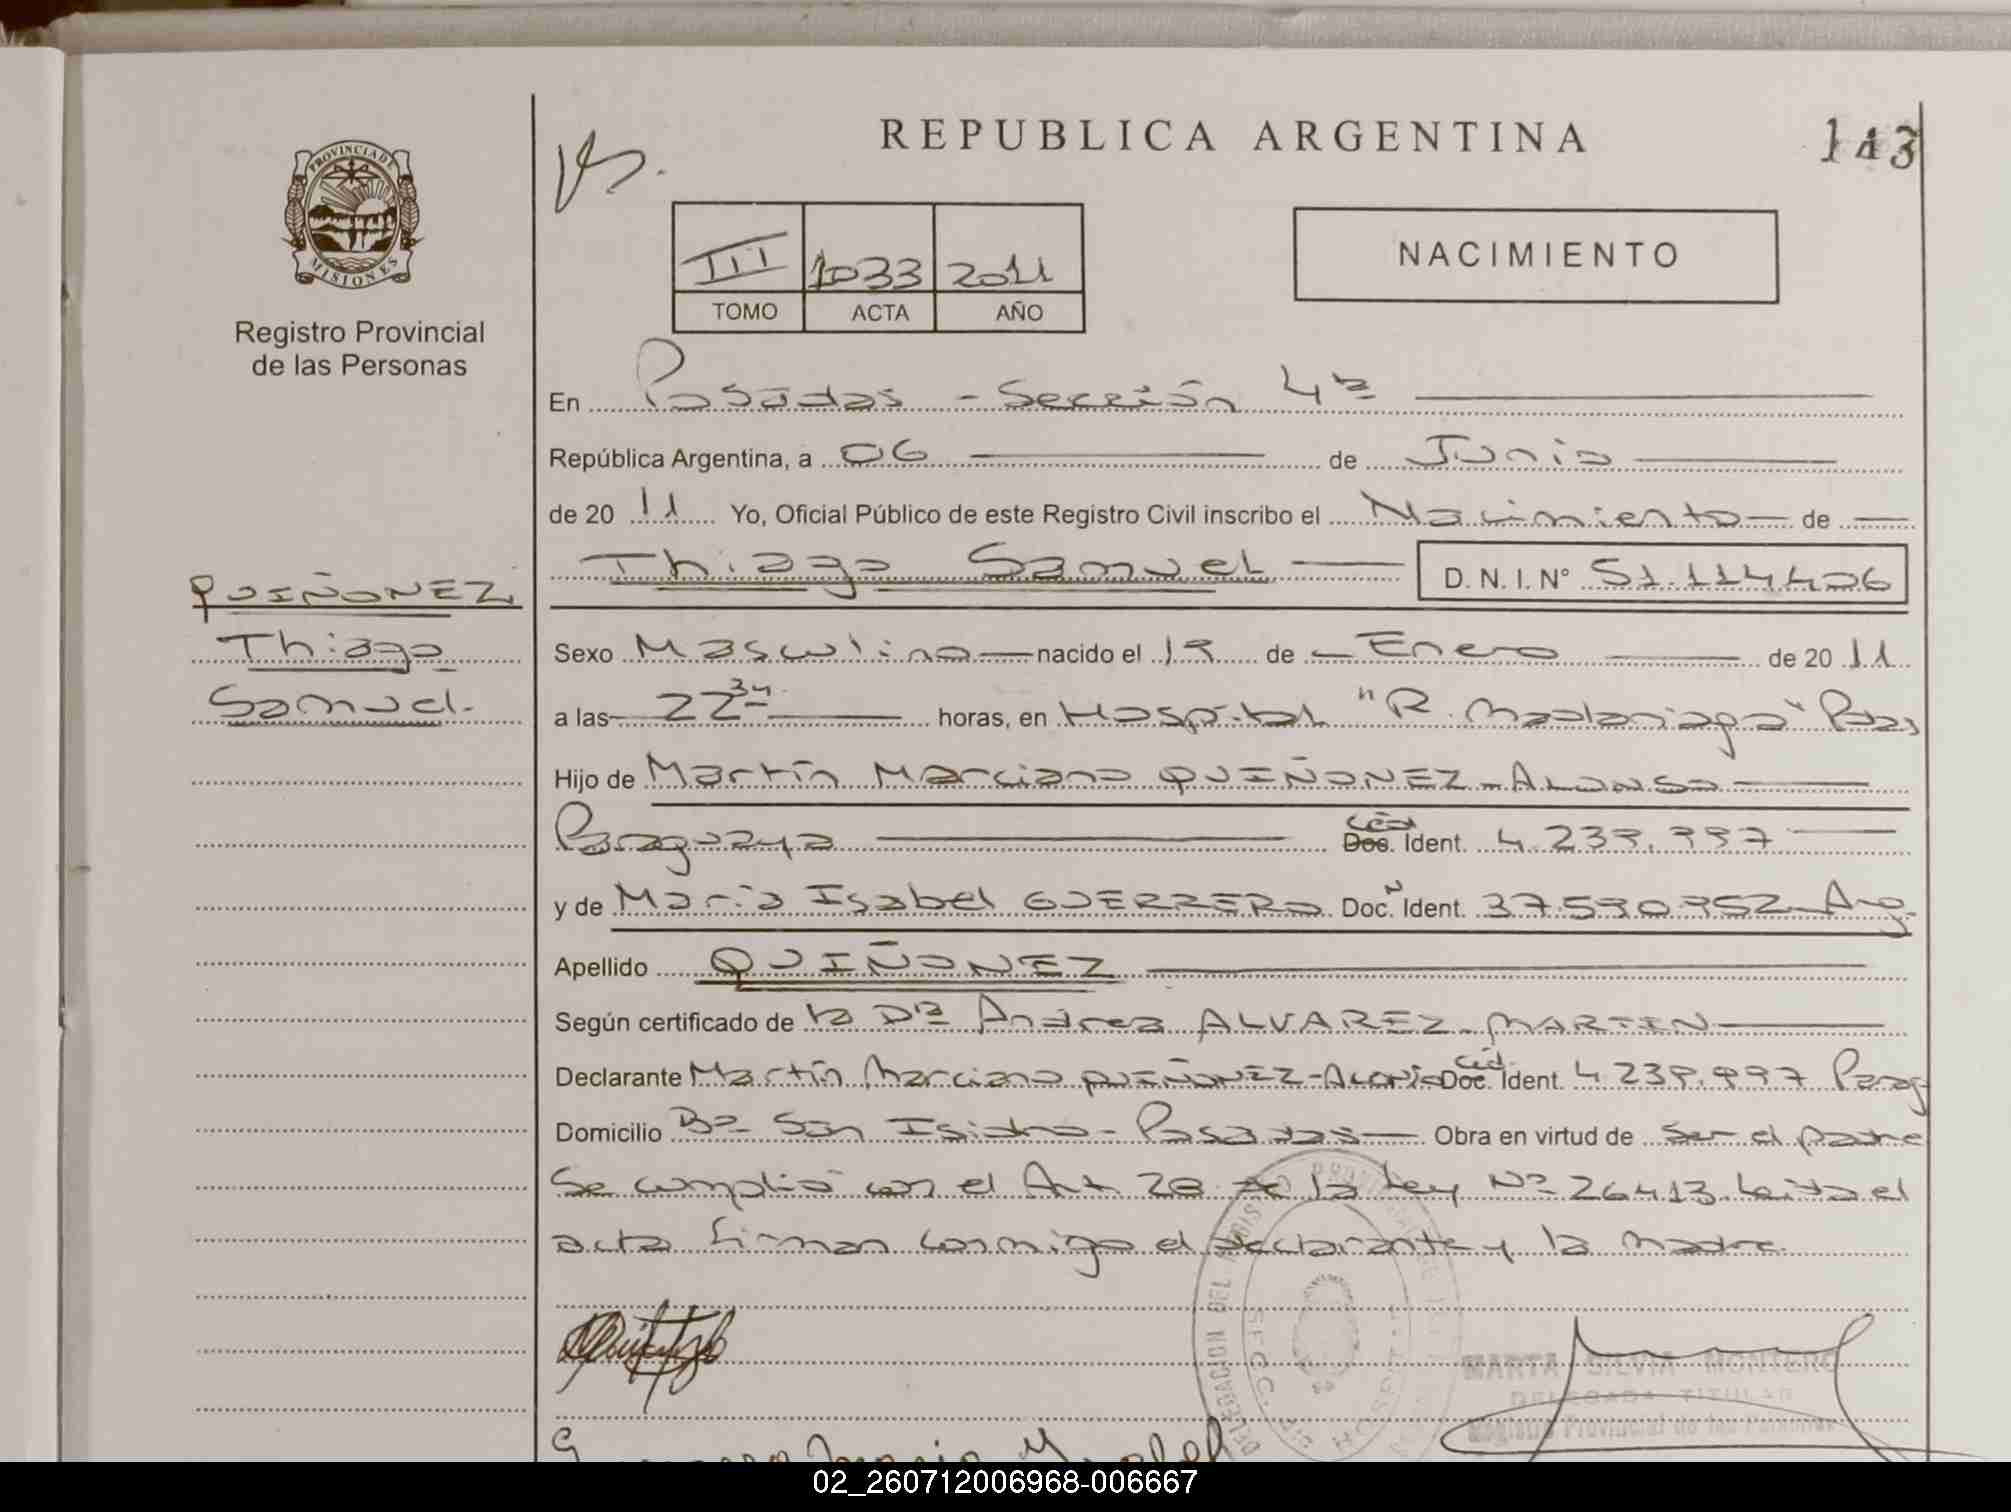 REPUBLICA ARGENTINA
143
PROVINCIA DE
MISIONES
Registro Provincial
de las Personas
III 1033 2011
TOMO ACTA AÑO
NACIMIENTO
En Posadas - Sección 4ta
República Argentina, a 06 de Junio
de 2011 Yo, Oficial Público de este Registro Civil inscribo el Nacimiento de
Thiago Samuel D.N.I. Nº 51.114.426
QUIÑONEZ
Thiago
Samuel.
Sexo Masculino nacido el 19 de Enero de 2011
a las 22 34 horas, en Hospital "R. Madariaga" Pdas
Hijo de Martín Marciano QUIÑONEZ-ALONSO
Paraguaya Céd Doc. Ident. 4.239.997
y de María Isabel GUERRERO Doc. N Ident. 37.590.952 Arg.
Apellido QUIÑONEZ
Según certificado de la Dra Andrea ALVAREZ MARTIN
Declarante Martín Marciano QUIÑONEZ-ALONSO Céd. Doc. Ident. 4.239.997 Parag
Domicilio Bº San Isidro - Posadas Obra en virtud de Ser el padre
Se cumplió con el Art 28 de la Ley Nº 26413. Leída el
acta firman conmigo el declarante y la madre.
MARTA SILVIA MONTERO
DELEGADA TITULAR
Registro Provincial de las Personas
02_260712006968-006667